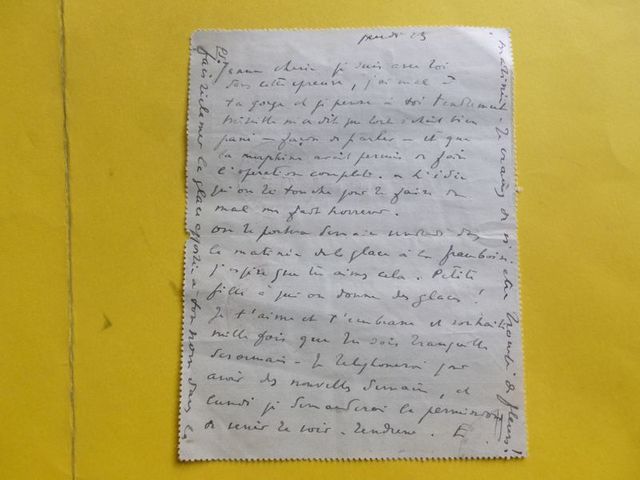 jeudi 23
Jeanne chérie je suis avec toi
dans cette épreuve, j'ai mal à
ta gorge et je pense à toi tendrement
m'a dit que tout s'était bien
passé – façon de parler – et que
la morphine avait permis de faire
l'opération complète. L'idée
qu'on te touche pour te faire du
mal me fait horreur.
On te portera demain vendredi dans
la matinée de la glace à la framboise
j'espère que tu aimes cela. Petite
fille à qui on donne des glaces!
Je t'aime et t'embrasse et souhaite
mille fois que tu sois tranquille
désormais – Je téléphonerai pour
avoir des nouvelles demain, et
lundi je demanderai la permission
de venir te voir. Tendresse. E
fais réclamer la glace apportée à ton nom dans la
matinée. Je crains de fleurs!